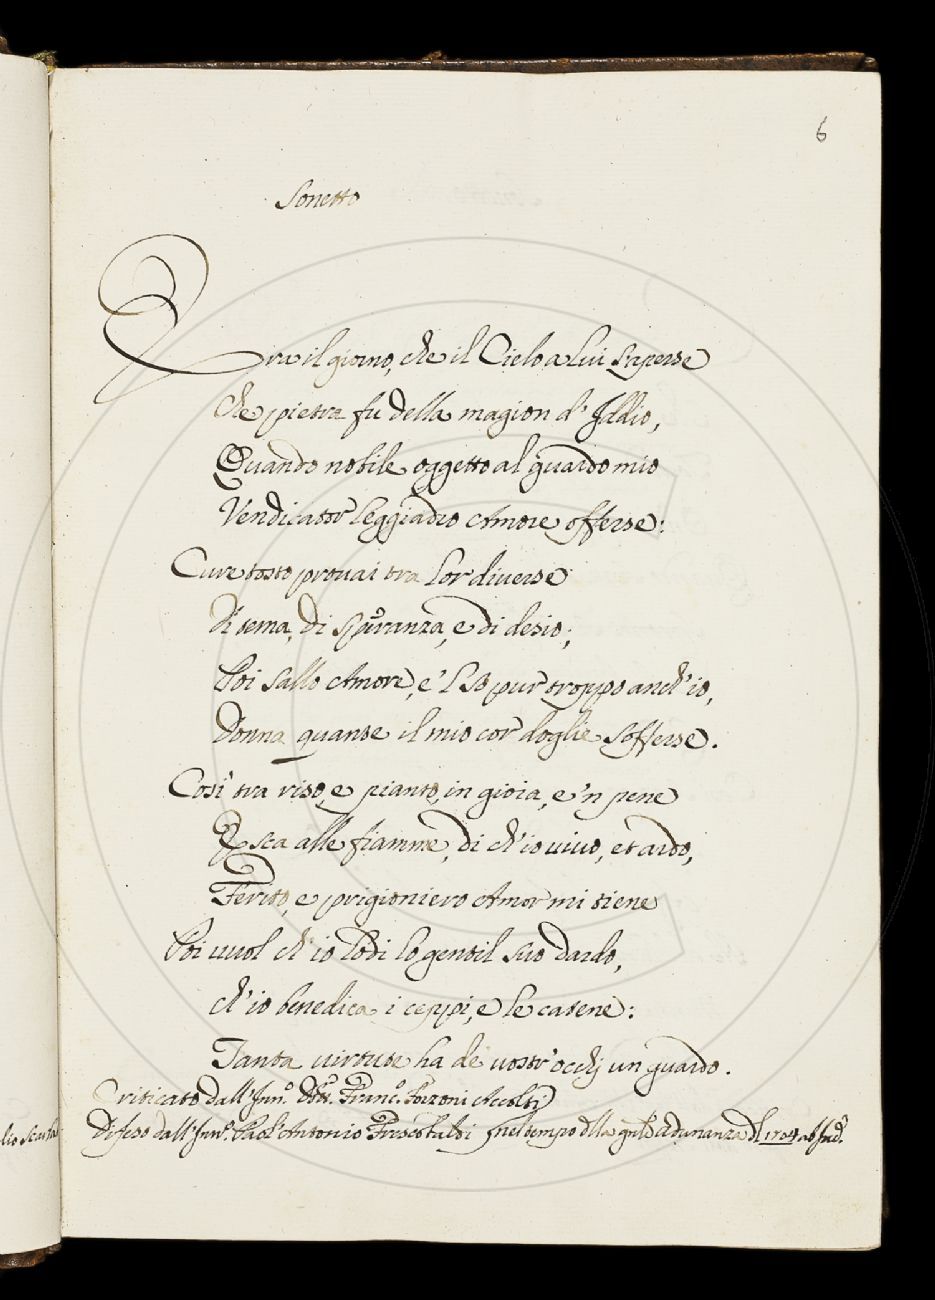 6
Sonetto
Era il giorno, che il Cielo a Lui s'aperse
Che pietra fù della magion d' Iddio,
Quando nobile oggetto al guardo mio
Vendicator leggiadro Amore offerse:
Cure tosto provai tra lor diverse
Di tema, di speranza, e di desio;
Poi sallo Amore, e' l so pur troppo anch' io,
Donna quante il mio cor doglie sofferse.
Così tra riso, e pianto, in gioia, e 'n pene
Esca alle fiamme, di ch' io vivo, et ardo,
Ferito, e prigioniero Amor mi tiene
Poi vuol ch' io lodi lo gentil suo dardo,
ch' io benedica i ceppi, e le catene:
Tanta virtute ha de' vostr' occhj un guardo.
Criticato dall' Inn.º Dott. Franc.º Forzoni Accolti
Difeso dall' Inn.º Antonio Frescobaldi nel tempo dlla adunanza dl 1704 ab